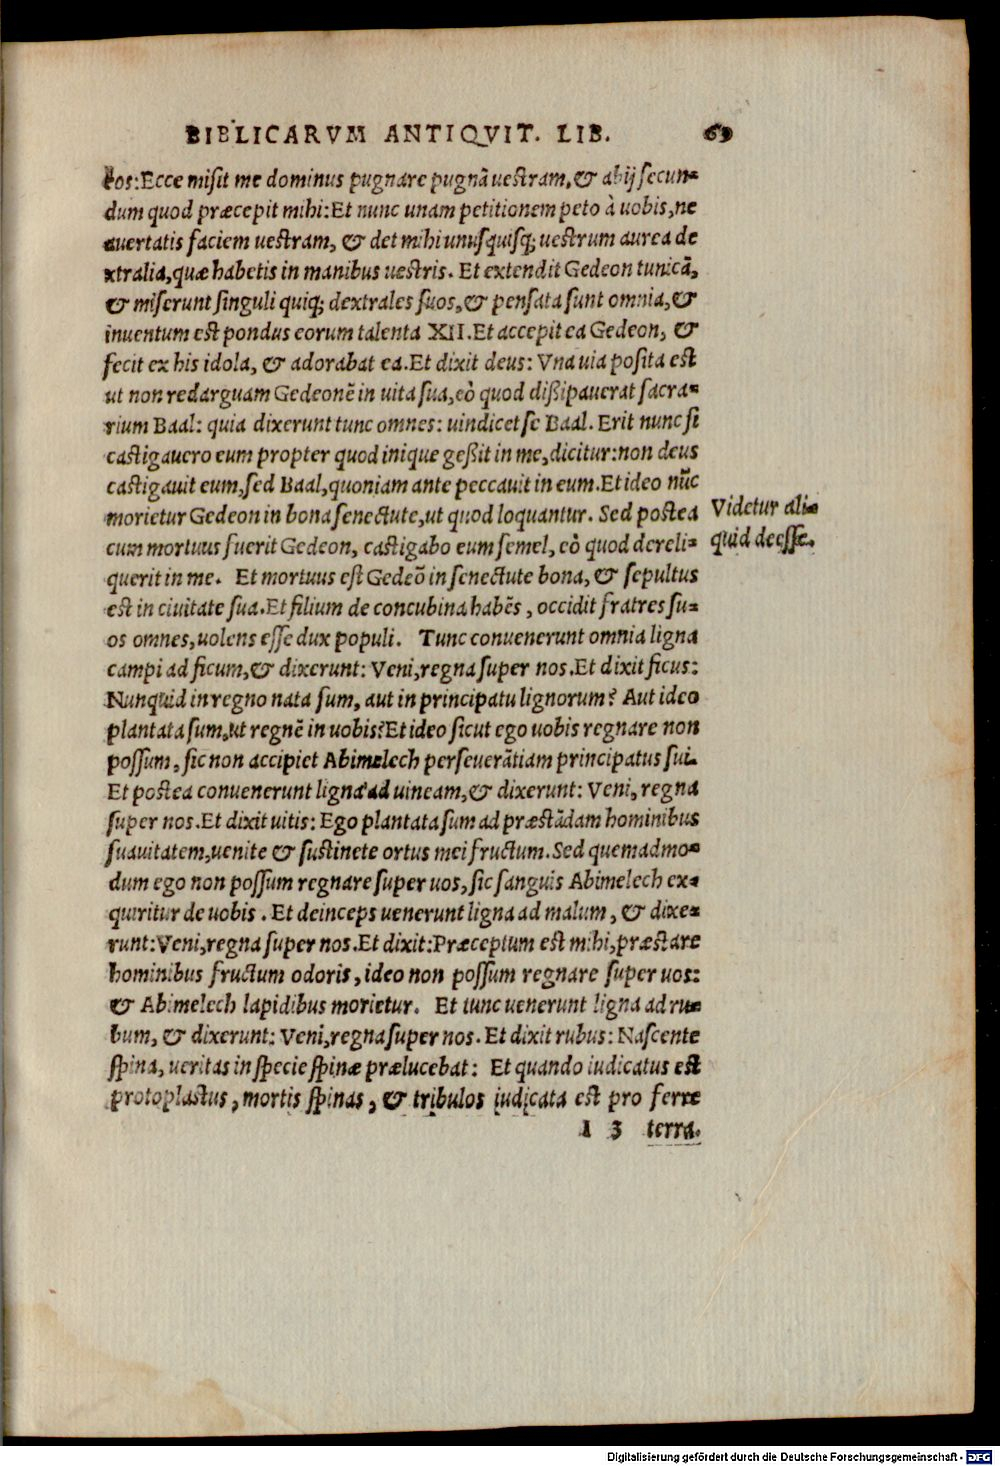 BIBLICARVM ANTIQVIT. LIB. 69
los: Ecce misit me dominus pugnare pugnã uestram, & abij secun-
dum quod præcepit mihi: Et nunc unam petitionem peto à uobis, ne
auertatis faciem uestram, & det mihi unusquisq; uestrum aurea de
xtralia, quæ habetis in manibus uestris. Et extendit Gedeon tunicã,
& miserunt singuli quiq; dextrales suos, & pensata sunt omnia, &
inuentum est pondus eorum talenta XII. Et accepit ea Gedeon, &
fecit ex his idola, & adorabat ea. Et dixit deus: Vna uia posita est
ut non redarguam Gedeonẽ in uita sua, eò quod dißipauerat sacra-
rium Baal: quia dixerunt tunc omnes: uindicet se Baal. Erit nunc si
castigauero eum propter quod inique geßit in me, dicitur: non deus
castigauit eum, sed Baal, quoniam ante peccauit in eum. Et ideo nũc
morietur Gedeon in bona senectute, ut quod loquantur. Sed postea
Videtur ali-
quid deesse.
cum mortuus fuerit Gedeon, castigabo eum semel, eò quod dereli-
querit in me. Et mortuus est Gedeõ in senectute bona, & sepultus
est in ciuitate sua. Et filium de concubina habẽs, occidit fratres su-
os omnes, uolens esse dux populi. Tunc conuenerunt omnia ligna
campi ad ficum, & dixerunt: Veni, regna super nos. Et dixit ficus:
Nunquid in regno nata sum, aut in principatu lignorum? Aut ideo
plantata sum, ut regnẽ in uobis? Et ideo sicut ego uobis regnare non
possum, sic non accipiet Abimelech perseuerãtiam principatus sui.
Et postea conuenerunt ligna ad uineam, & dixerunt: Veni, regna
super nos. Et dixit uitis: Ego plantata sum ad præstãdam hominibus
suauitatem, uenite & sustinete ortus mei fructum. Sed quemadmo-
dum ego non possum regnare super uos, sic sanguis Abimelech ex-
quiritur de uobis. Et deinceps uenerunt ligna ad malum, & dixe-
runt: Veni, regna super nos. Et dixit: Præceptum est mihi, præstare
hominibus fructum odoris, ideo non possum regnare super uos:
& Abimelech lapidibus morietur. Et tunc uenerunt ligna ad ru-
bum, & dixerunt: Veni, regna super nos. Et dixit rubus: Nascente
spina, ueritas in specie spinæ prælucebat: Et quando iudicatus est
protoplastus, mortis spinas, & tribulos iudicata est pro ferre
1 3 terra.
Digitalisierung gefördert durch die Deutsche Forschungsgemeinschaft - DFG